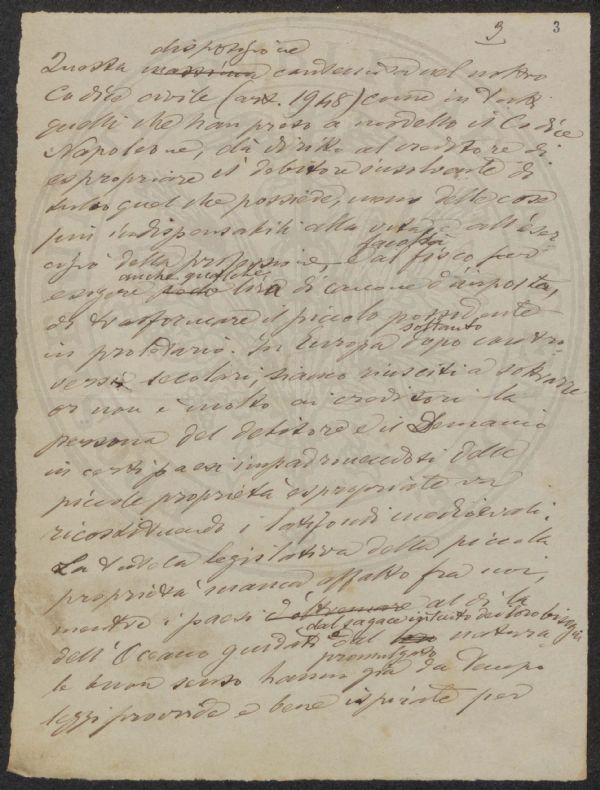 3 3
disposizione
Questa massima contenuta nel nostro
Codice civile (art. 1948) come in tutti
quelli che han preso a modello il Codice
Napoleone, dà diritto al creditore di
espropriare il debitore insolvente di
tutto quel che possiede, meno delle cose
più indispensabili alla vita e all'eser-
cizio della professione, e facoltà al fisco per
esigere poche anche qualche lira di canone d'imposta,
di trasformare il piccolo possidente
in proletario. In Europa soltanto dopo contro-
versie secolari, siamo riusciti a sottrarre
or non è molto ai creditori la
persona del debitore e il Demanio
in certi paesi impadronendosi delle
piccole proprietà espropriate va
ricostituendo i latifondi medioevali.
La tutela legislativa della piccola
proprietà manca affatto fra noi,
mentre i paesi d'oltremare al di là
dell'Oceano guidati dal sagace intuito dei loro bisogni e dal natura-
le buon senso hanno già da tempo promulgato
leggi provvide e bene ispirate per